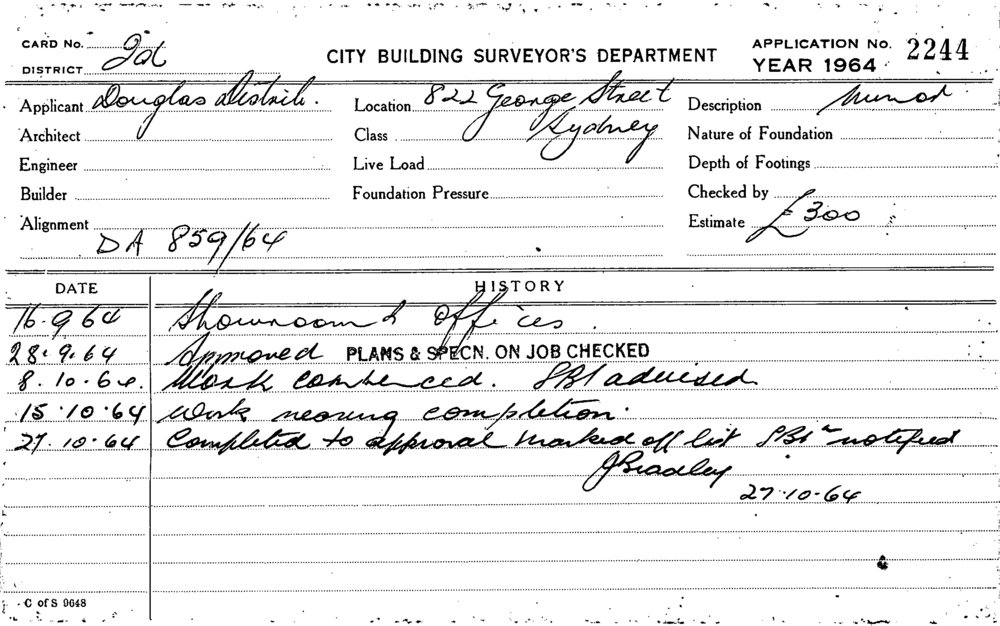 CARD No. 2d
CITY BUILDING SURVEYOR'S DEPARTMENT
APPLICATION No. 2244
DISTRICT
YEAR 1964
Applicant Douglas Distrib.
Location 822 George Street
Sydney
Description Minor
Architect
Class
Nature of Foundation
Engineer
Live Load
Depth of Footings
Builder
Foundation Pressure
Checked by
Alignment
Estimate £300
DA 859/64
DATE
HISTORY
16.9.64 Showroom & offices.
28.9.64 Approved PLANS & SPECN. ON JOB CHECKED
8.10.64. Work commenced. SBI advised
15.10.64 Work nearing completion.
27.10.64 Completed to approval marked off list SBI notified
JBradley
27.10.64
C of S 9648